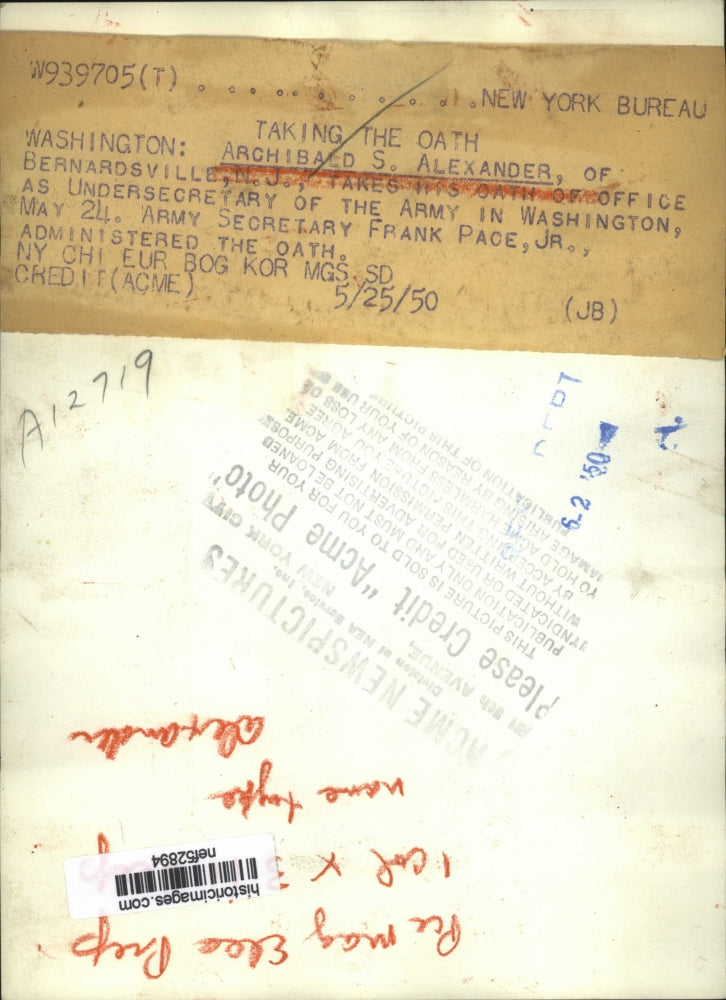 W939705(T) . . . . . . . . . . . .NEW YORK BUREAU
TAKING THE OATH
WASHINGTON: ARCHIBALD S. ALEXANDER, OF
BERNARDSVILLE, N.J., TAKES HIS OATH OF OFFICE
AS UNDERSECRETARY OF THE ARMY IN WASHINGTON,
MAY 24. ARMY SECRETARY FRANK PACE, JR.,
ADMINISTERED THE OATH.
NY CHI EUR BOG KOR MGS SD
CREDIT(ACME) 5/25/50 (JB)
A12719
DEPT
6-2 '50
ACME NEWSPICTURES
Division of NEA Service, Inc.
8th AVENUE, NEW YORK CITY
Please Credit "Acme Photo"
THIS PICTURE IS SOLD TO YOU FOR YOUR
PUBLICATION ONLY AND MUST NOT BE LOANED
SYNDICATED OR USED FOR ADVERTISING PURPOSE
WITHOUT WRITTEN PERMISSION FROM ACME.
BY ACCEPTING THIS PICTURE YOU AGREE
TO HOLD ACME HARMLESS FROM ANY LOSS OR
DAMAGE ARISING BY REASON OF YOUR USE
PUBLICATION OF THIS PICTURE
1 col x 3
name type
Alexander
historicimages.com
nef52894